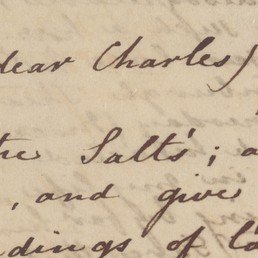 dear Charles)
the Salts; a
, and give
dings of la